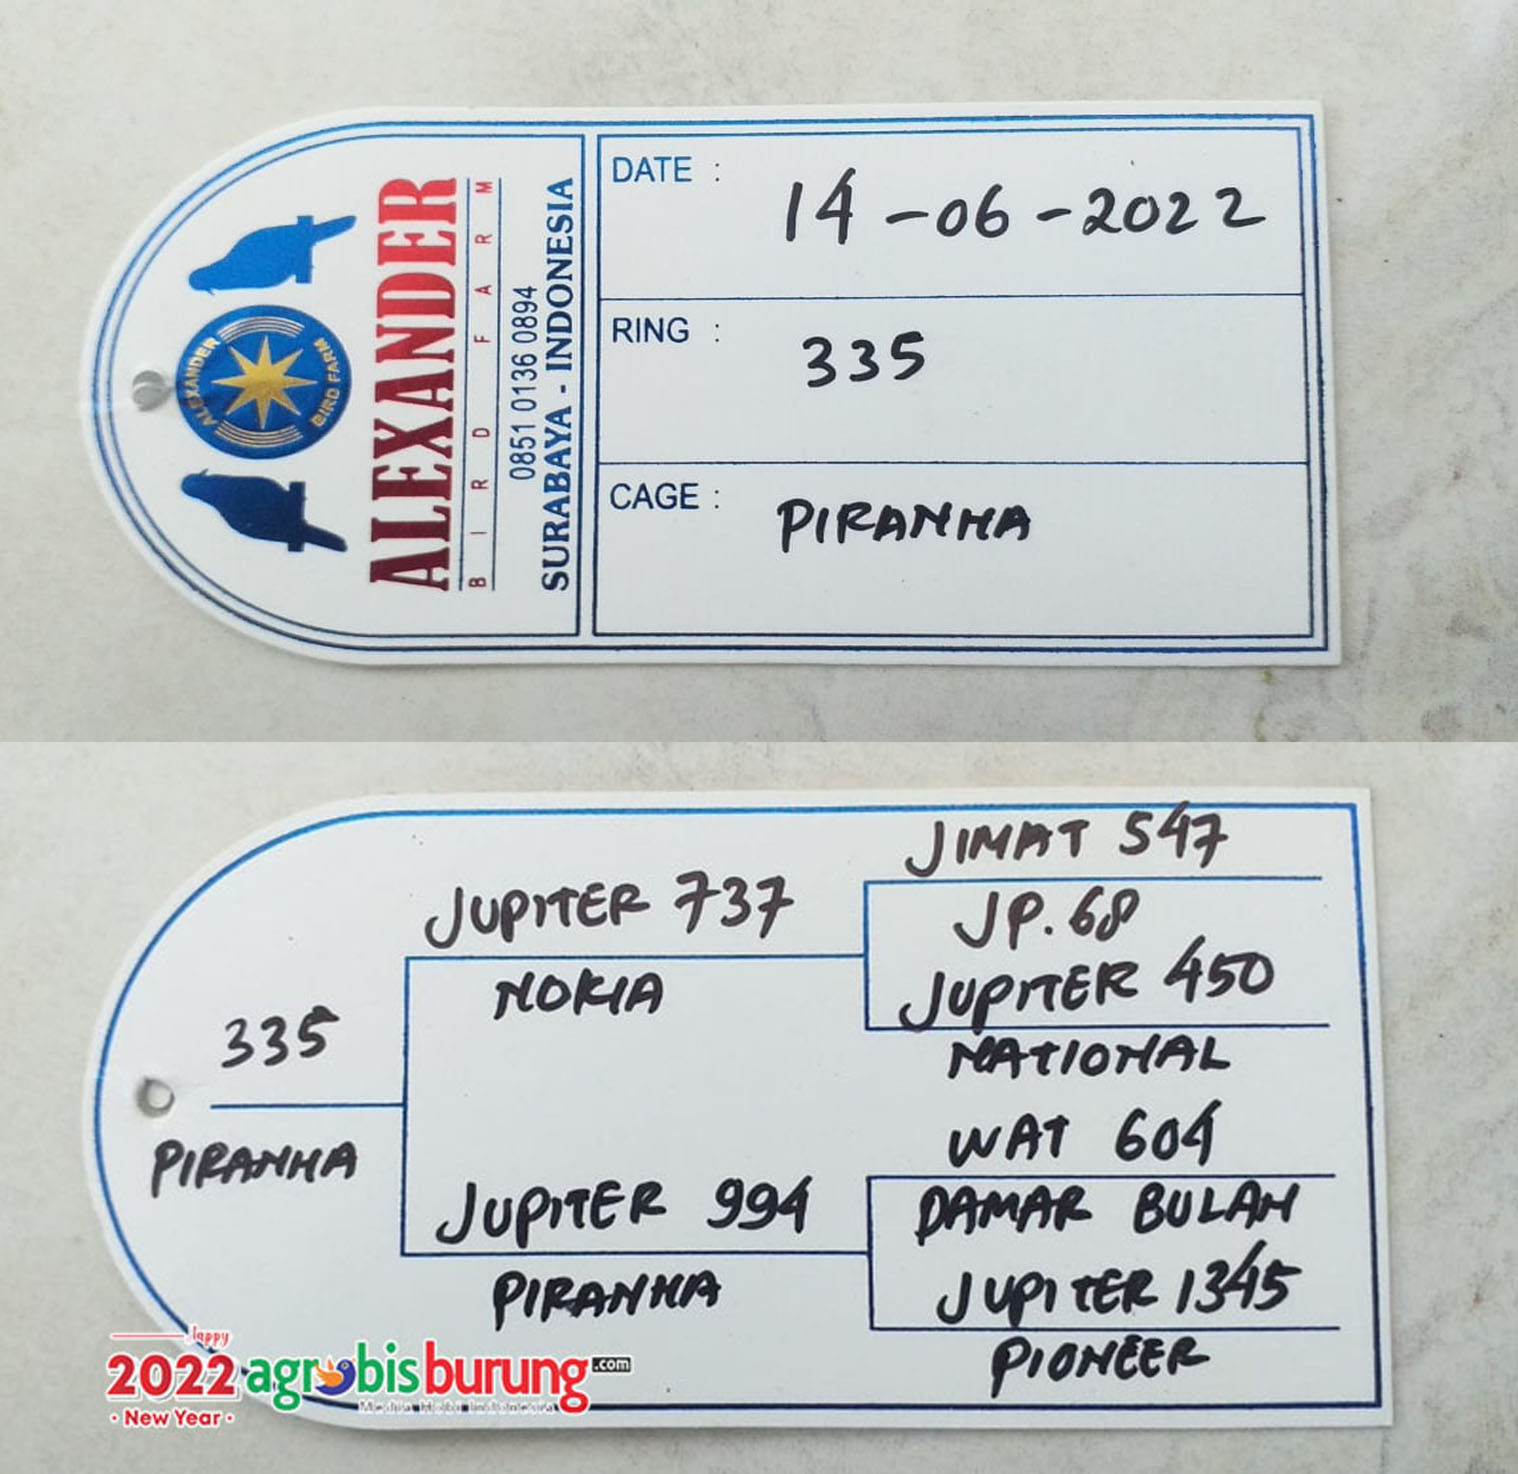 ALEXANDER
BIRD FARM
0851 0136 0894
SURABAYA - INDONESIA
ALEXANDER
BIRD FARM
DATE : 14-06-2022
RING : 335
CAGE : PIRANHA
335
PIRANHA
JUPITER 737
NOKIA
JUPITER 994
PIRANHA
JIMAT 547
JP. 68
JUPITER 450
NATIONAL
WAT 604
DAMAR BULAN
JUPITER 1345
PIONEER
2022
New Year
agrobisburung.com
Media Hobi Indonesia